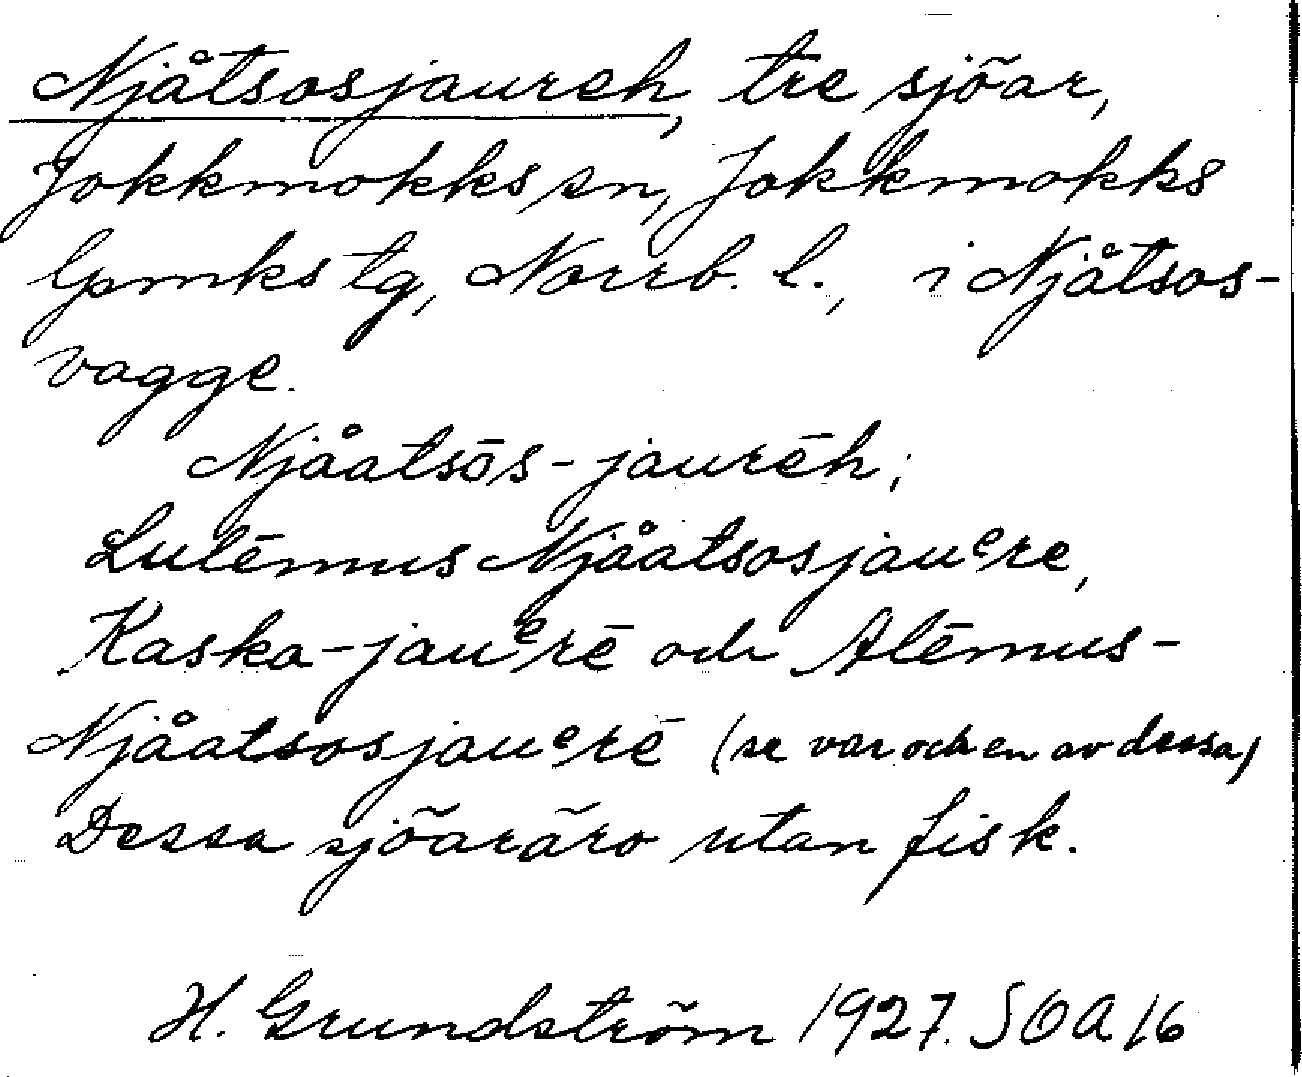 Njåtsosjaureh, tre sjöar,
Jokkmokks sn, Jokkmokks
lpmks tg, Norrb. l., i Njåtsos-
vagge.
Njåatsōs-jaurēh;
Lulēmus Njåatsosjauᵉre,
Kaska-jauᵉrē och Alēmus-
Njåatsosjauᵉrē (se var och en av dessa)
Dessa sjöar äro utan fisk.
H. Grundström 1927. SOA 16